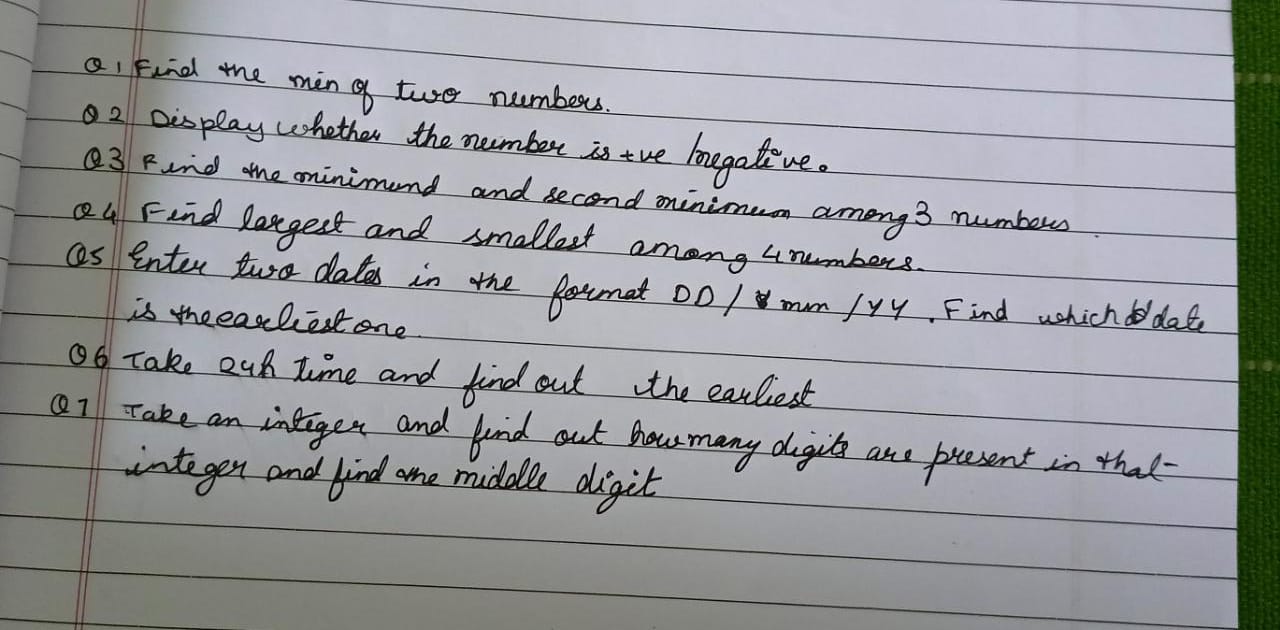 Q1 Find the min of two numbers.
Q2 Display whether the number is +ve /negative.
Q3 Find the minimum and second minimum among 3 numbers.
Q4 Find largest and smallest among 4 numbers.
Q5 Enter two dates in the format DD/mm/YY. Find which date
is the earliest one
Q6 Take 24h time and find out the earliest
Q7 Take an integer and find out how many digits are present in that
integer and find the middle digit